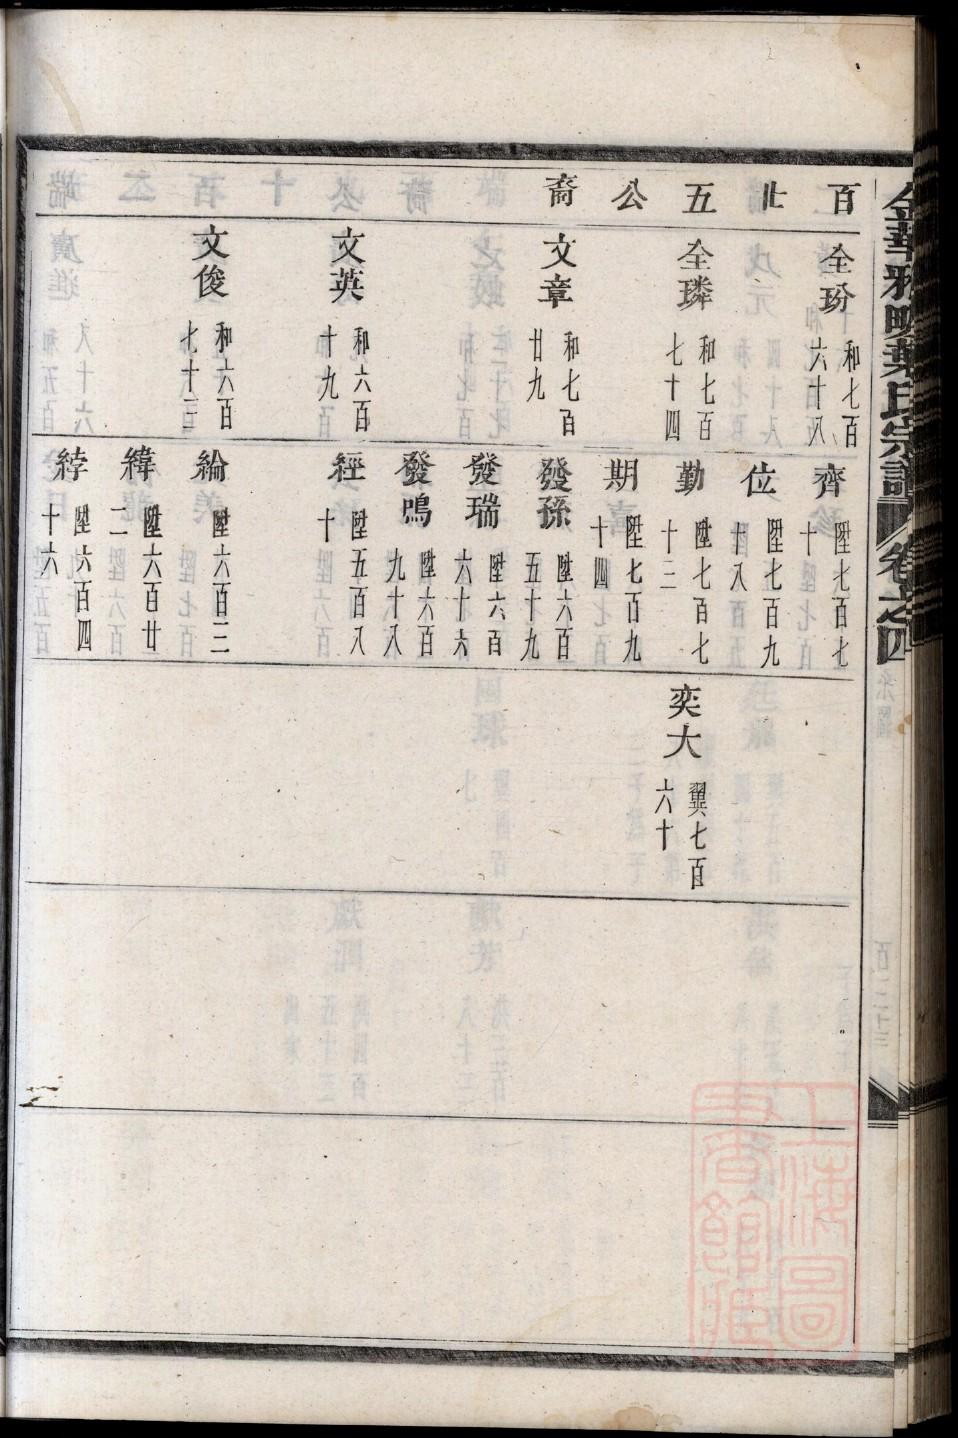 金華雅畈葉氏宗譜 卷之四
百廿五公裔
全玢 和七百六十八
全璘 和七百七十四
文章 和七百廿九
文英 和六百十九
文俊 和六百七十三
齊 陞七百七十
位 陞七百九十八
勤 陞七百七十三
期 陞七百九十四
發孫 陞六百五十九
發瑞 陞六百六十六
發鳴 陞六百九十八
經 陞五百八十
綸 陞六百三
緯 陞六百廿二
綍 陞六百四十六
奕大 翼七百六十
上海圖書館藏